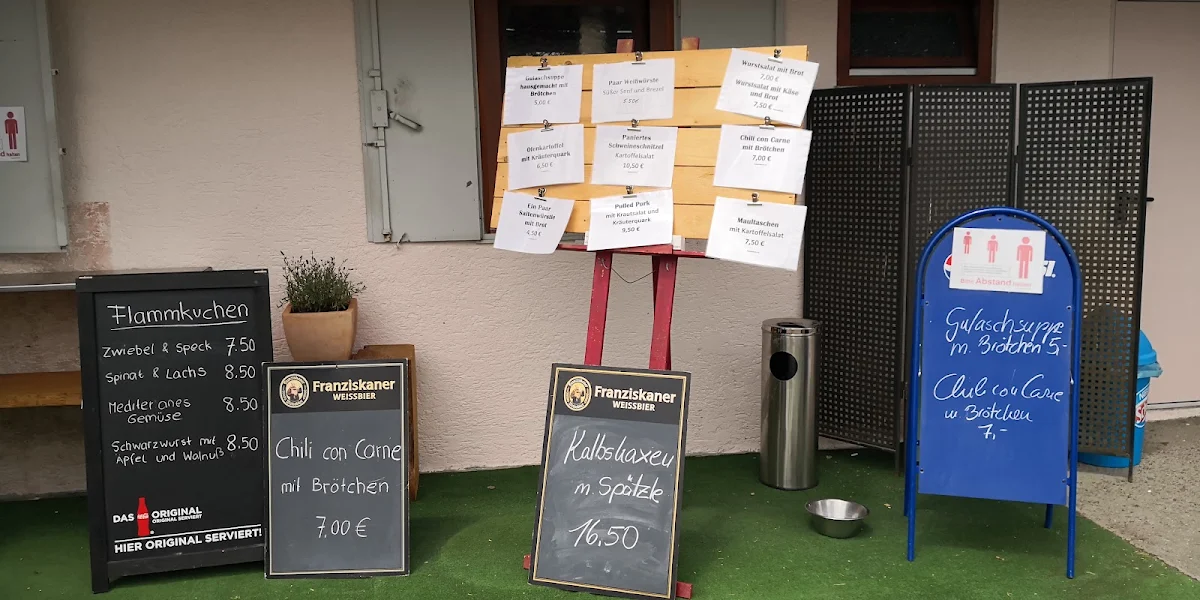 Flammkuchen
Zwiebel & Speck 7.50
Spinat & Lachs 8.50
Mediteranes 8.50
Gemüse
Schwarzwurst mit 8.50
Apfel und Walnuß
DAS ORIGINAL
ORIGINAL SERVIERT
HIER ORIGINAL SERVIERT!
Franziskaner
WEISSBIER
Chili con Carne
mit Brötchen
7.00 €
Gulaschsuppe
hausgemacht mit
Brötchen
5,00 €
Paar Weißwürste
Süßer Senf und Brezel
5.50€
Wurstsalat mit Brot
7,00 €
Wurstsalat mit Käse
und Brot
7,50 €
Ofenkartoffel
mit Kräuterquark
6,50 €
Paniertes
Schweineschnitzel
Kartoffelsalat
10,50 €
Chili con Carne
mit Brötchen
7,00 €
Ein Paar
Saitenwürstle
mit Brot
4,50 €
Pulled Pork
mit Krautsalat und
Kräuterquark
9,50 €
Maultaschen
mit Kartoffelsalat
7,50 €
Franziskaner
WEISSBIER
Kalbshaxen
m. Spätzle
16.50
Abstand halten
Gulaschsuppe
m. Brötchen 5,-
Chili con Carne
m Brötchen
7,-